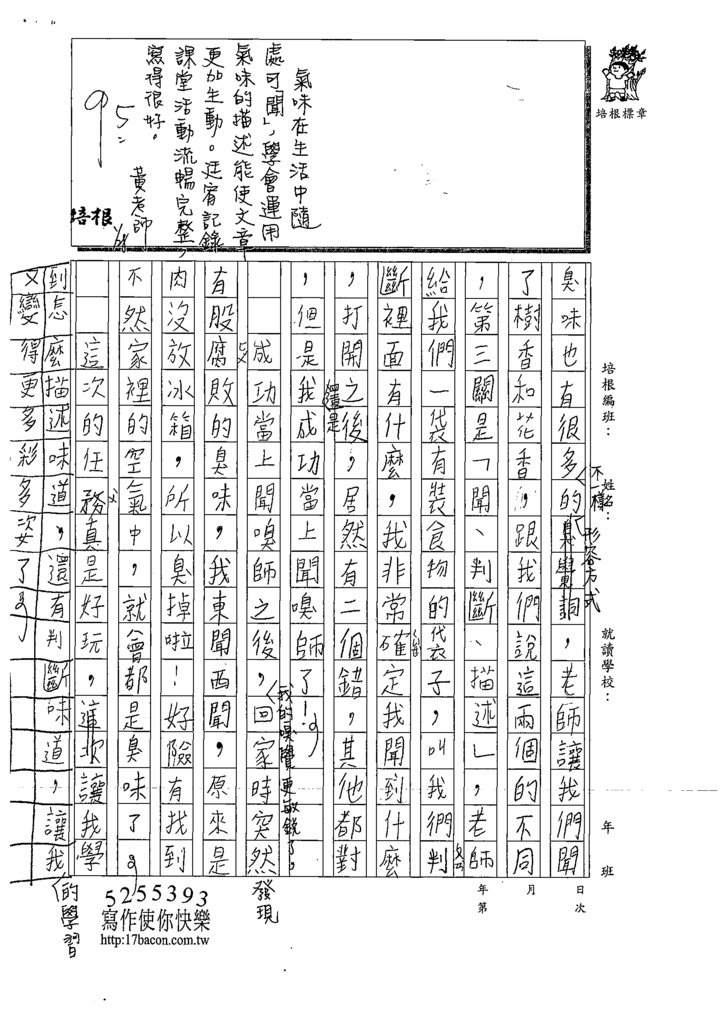 培根標章
氣味在生活中隨
處可聞，學會運用
氣味的描述能使文章
更加生動。廷宥記錄
課堂活動流暢完整，
寫得很好。
95
黃老師
培根
培根編班：
姓名：
就讀學校：
年 班
年 月 日
第 次
臭味也有很多的，老師讓我們聞
不一樣
形容方式
了樹香和花香，跟我們說這兩個的不同
，第三關是「聞、判斷、描述」，老師
給我們一袋有裝食物的袋子，叫我們判
斷裡面有什麼，我非常確定我聞到什麼
，打開之後，居然有二個錯，其他都對
，但是我還是成功當上聞嗅師了！
成功當上聞嗅師之後，我的嗅覺更敏銳了。回家時突然發現
有股腐敗的臭味，我東聞西聞，原來是
肉沒放冰箱，所以，臭掉啦！好險有找到
不然家裡的空氣中，就會都是臭味了。
這次的任務真是好玩，讓我學
到怎麼描述味道，還有判斷味道，讓我的學習
又變得更多彩多姿了。
5255393
寫作使你快樂
http:17bacon.com.tw